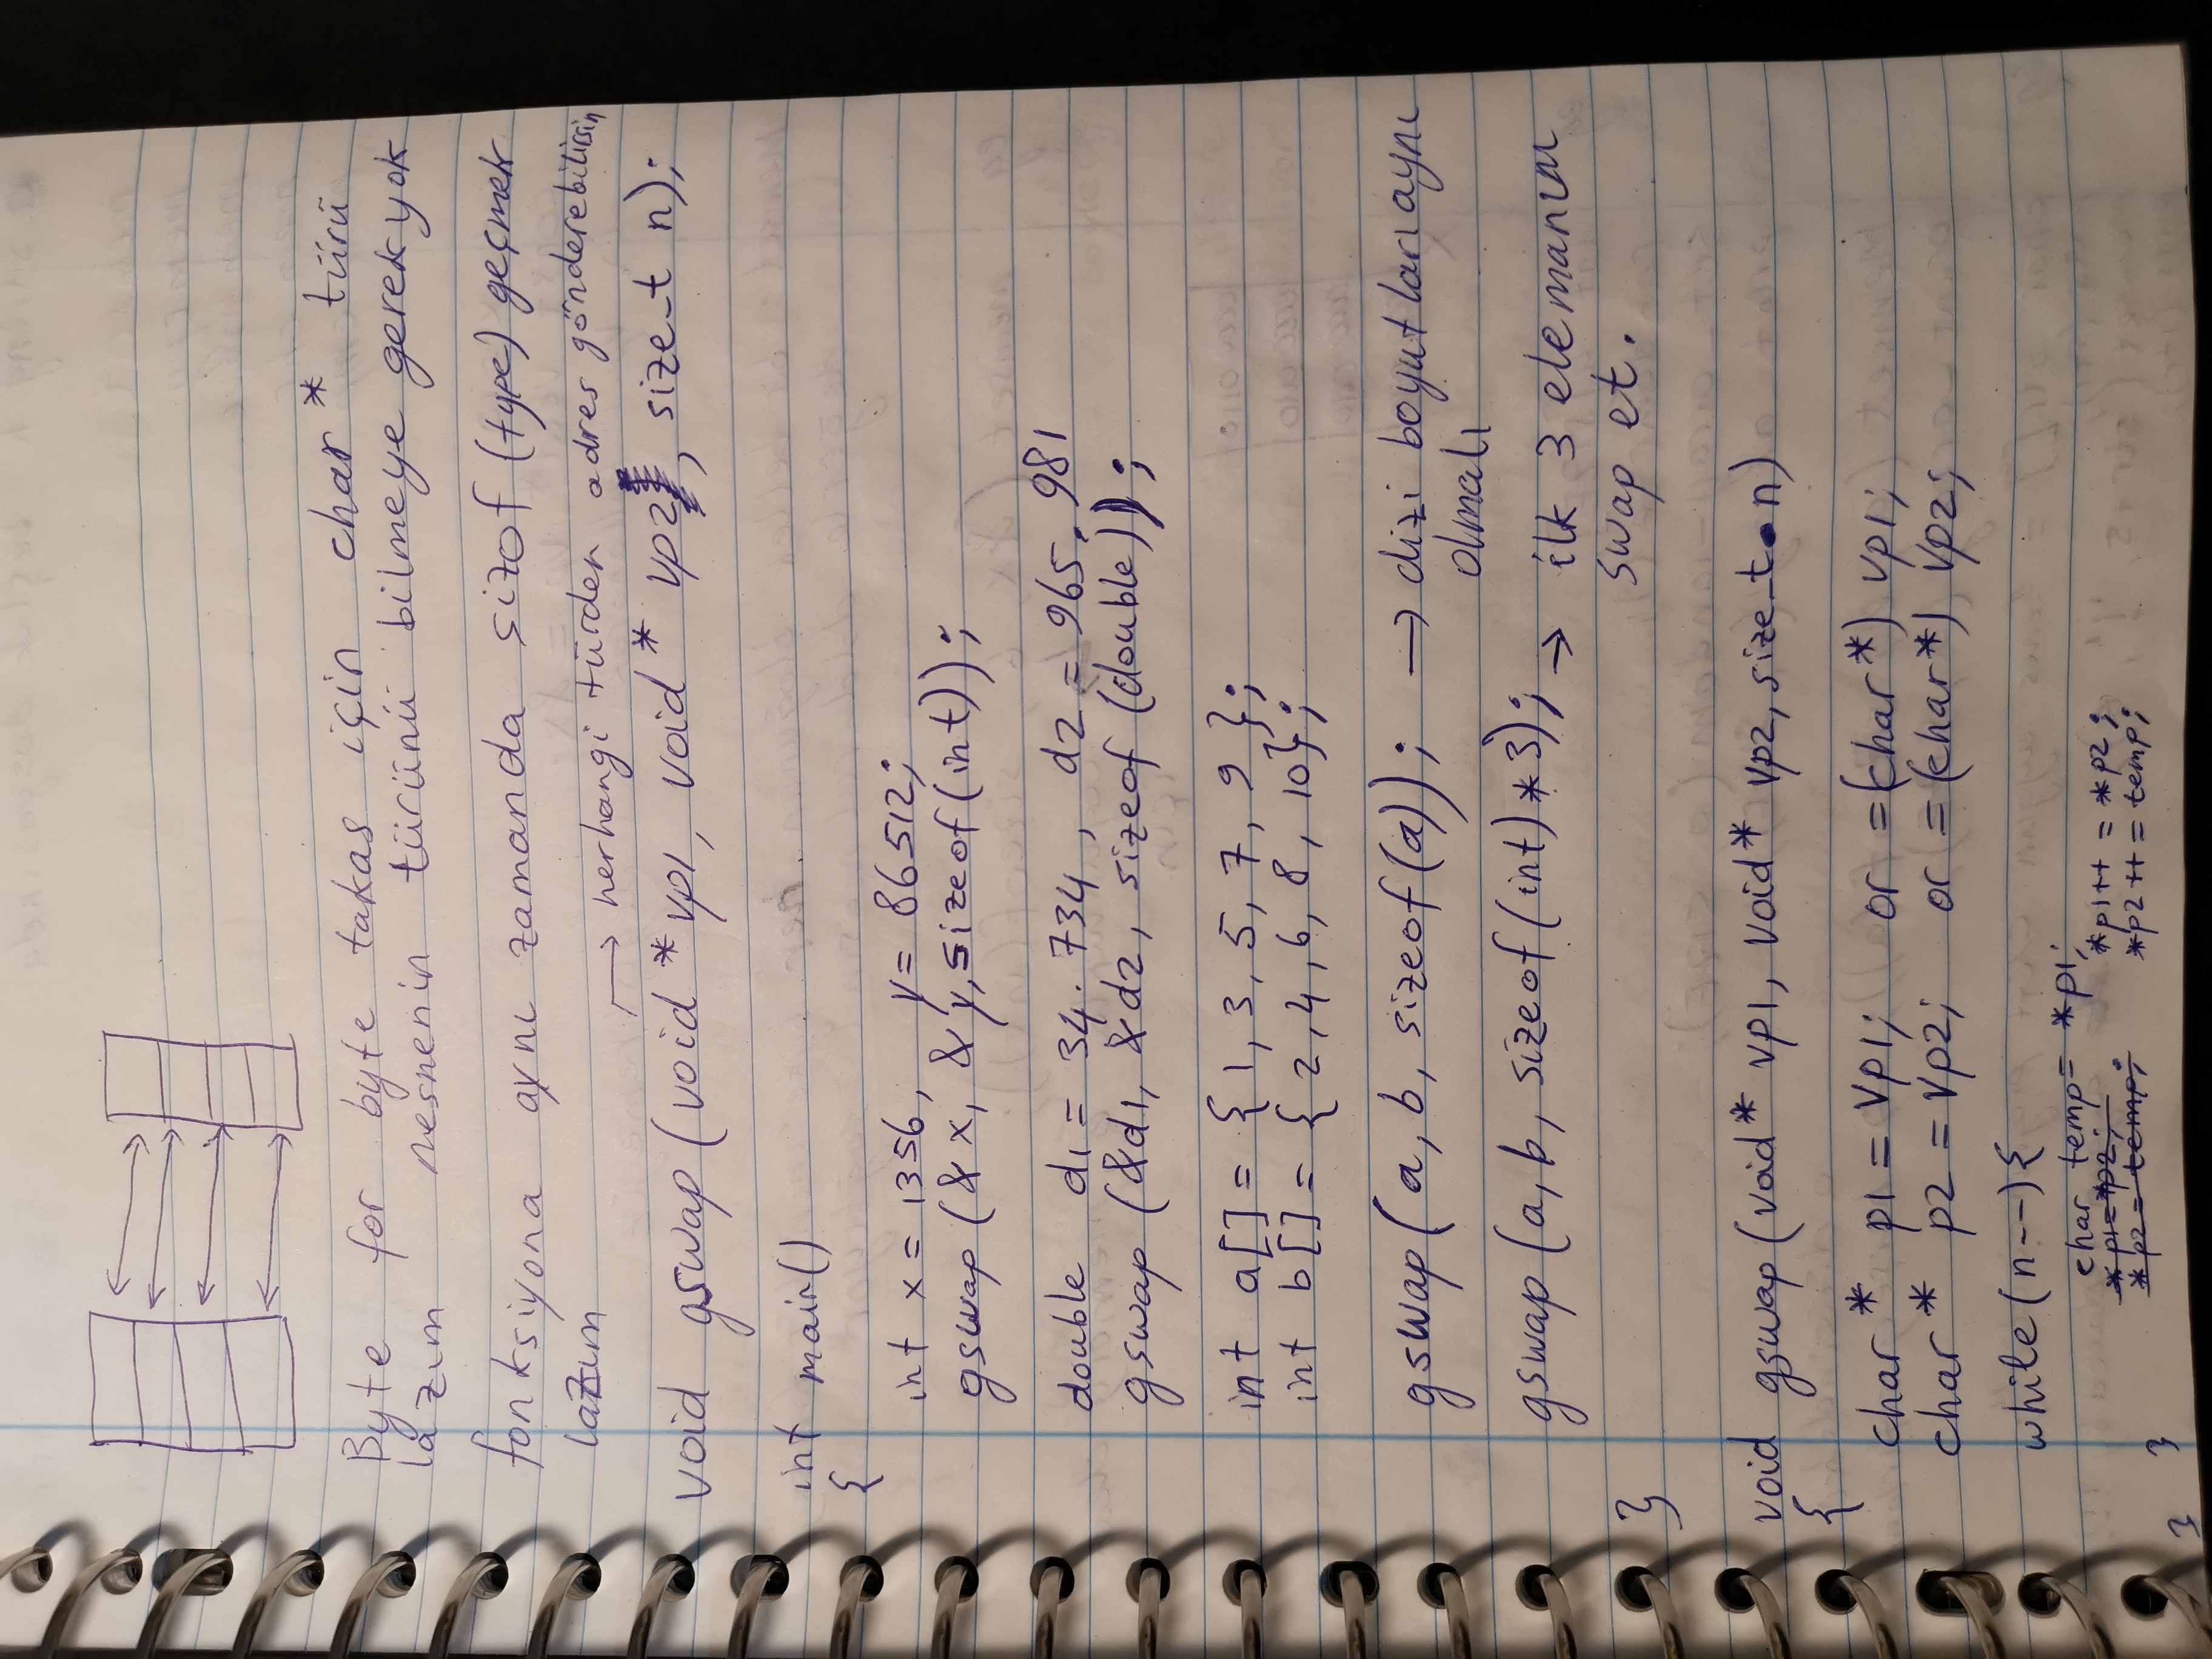 Byte for byte takas için char * türü
lazım nesnenin türünü bilmeye gerek yok
fonksiyona aynı zamanda sizof (type) geçmek
lazım
→ herhangi türden adres gönderebilirsin
void gswap (void * vp1, void * vp2, size_t n);
int main()
{
int x = 1356, y = 86512;
gswap (&x, &y, sizeof(int));
double d1 = 34.734, d2 = 965.981
gswap (&d1, &d2, sizeof (double));
int a[] = {1, 3, 5, 7, 9};
int b[] = {2, 4, 6, 8, 10};
gswap(a, b, sizeof(a)); → dizi boyutları aynı
olmalı
gswap (a, b, sizeof(int) * 3); → ilk 3 elemanını
swap et.
}
void gswap(void* vp1, void* vp2, size_t n)
{
char * p1 = vp1; or =(char*) vp1;
char * p2 = vp2; or =(char*) vp2;
while(n--){
char temp = *p1;
*p1=*p2; *p1++ = *p2;
*p2 = temp; *p2++ = temp;
} }